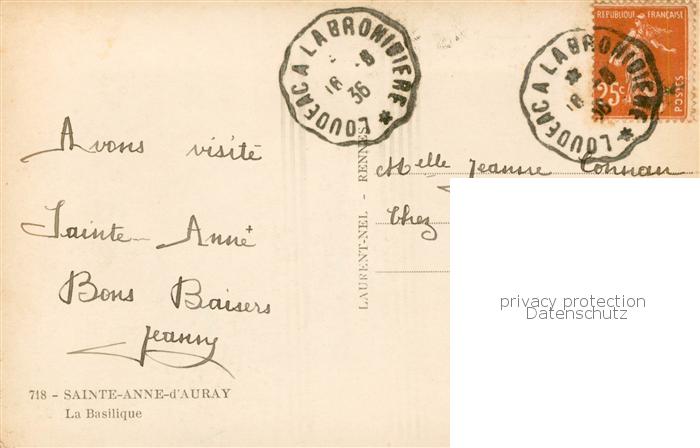 LOUDEAC A LABROHINIERE *
16 -8
36
LOUDEAC A LABROHINIERE *
16 -8
36
REPUBLIQUE FRANÇAISE
25c
POSTES
Avons visité
Sainte Anne
Bons Baisers
Jeanny
718 - SAINTE-ANNE-d'AURAY
La Basilique
LAURENT-NEL - RENNES
Melle Jeanne Connan
Chez
privacy protection
Datenschutz